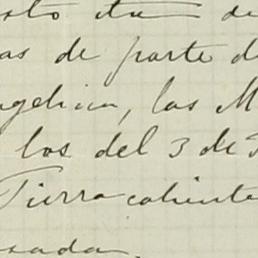 as de parte d
ngelica, las M
los del 3 de
Tierra caliente
sada.